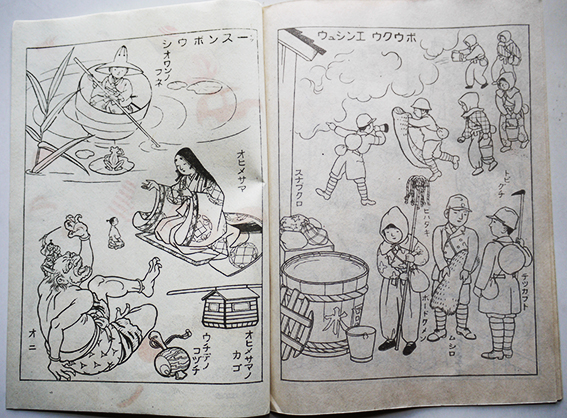 ボウクウ エンシュウ
トビグチ
スナブクロ
ヒハタキ
テツカブト
ムシロ
ボウドクメン
水
一スンボウシ
オワンノ
フネ
オヒメサマ
オヒメサマノ
カゴ
ウチデノ
コヅチ
オニ